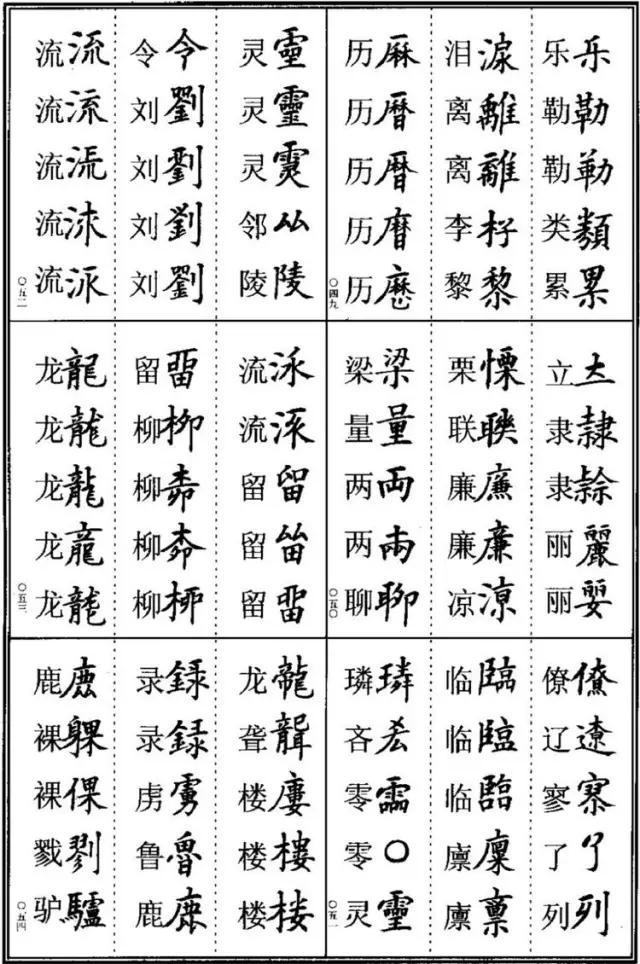 乐乐
勒勒
勒勒
类類
累累
泪淚
离離
离離
李杍
黎黎
历厤
历曆
历曆
历
历歷
〇四九
立
隶隸
隶
丽麗
丽
栗慄
联聫
廉
廉廉
凉凉
梁梁
量量
两両
两兩
聊聊
〇五〇
僚僚
辽遼
寥
了了
列列
临臨
临臨
临臨
廪廩
廪稟
璘璘
吝
零
零〇
灵靈
〇五一
灵靈
灵靈
灵
邻厸
陵陵
令令
刘劉
刘劉
刘劉
刘劉
流流
流流
流流
流
流
〇五二
流
流
留留
留
留
留
柳柳
柳
柳
柳
龙龍
龙龍
龙龍
龙龍
龙龍
〇五三
龙龍
聋聾
楼廔
楼樓
楼楼
录録
录録
虏虜
鲁魯
鹿鹿
鹿鹿
裸躶
裸倮
戮剹
驴驢
〇五四